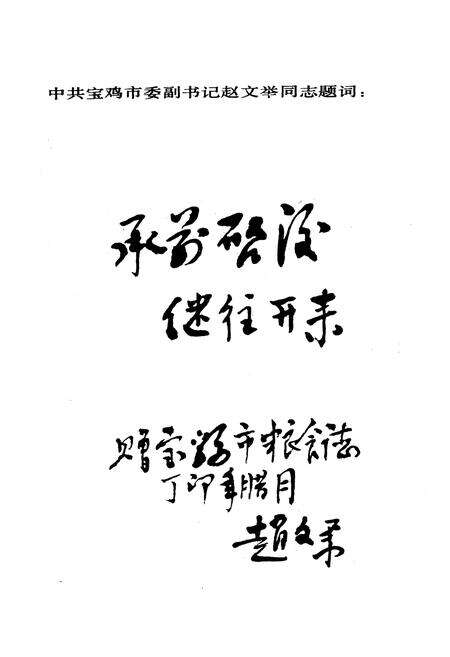 中共宝鸡市委副书记赵文举同志题词：
承前启后
继往开来
赠宝鸡市粮食志
丁卯年腊月
赵文举